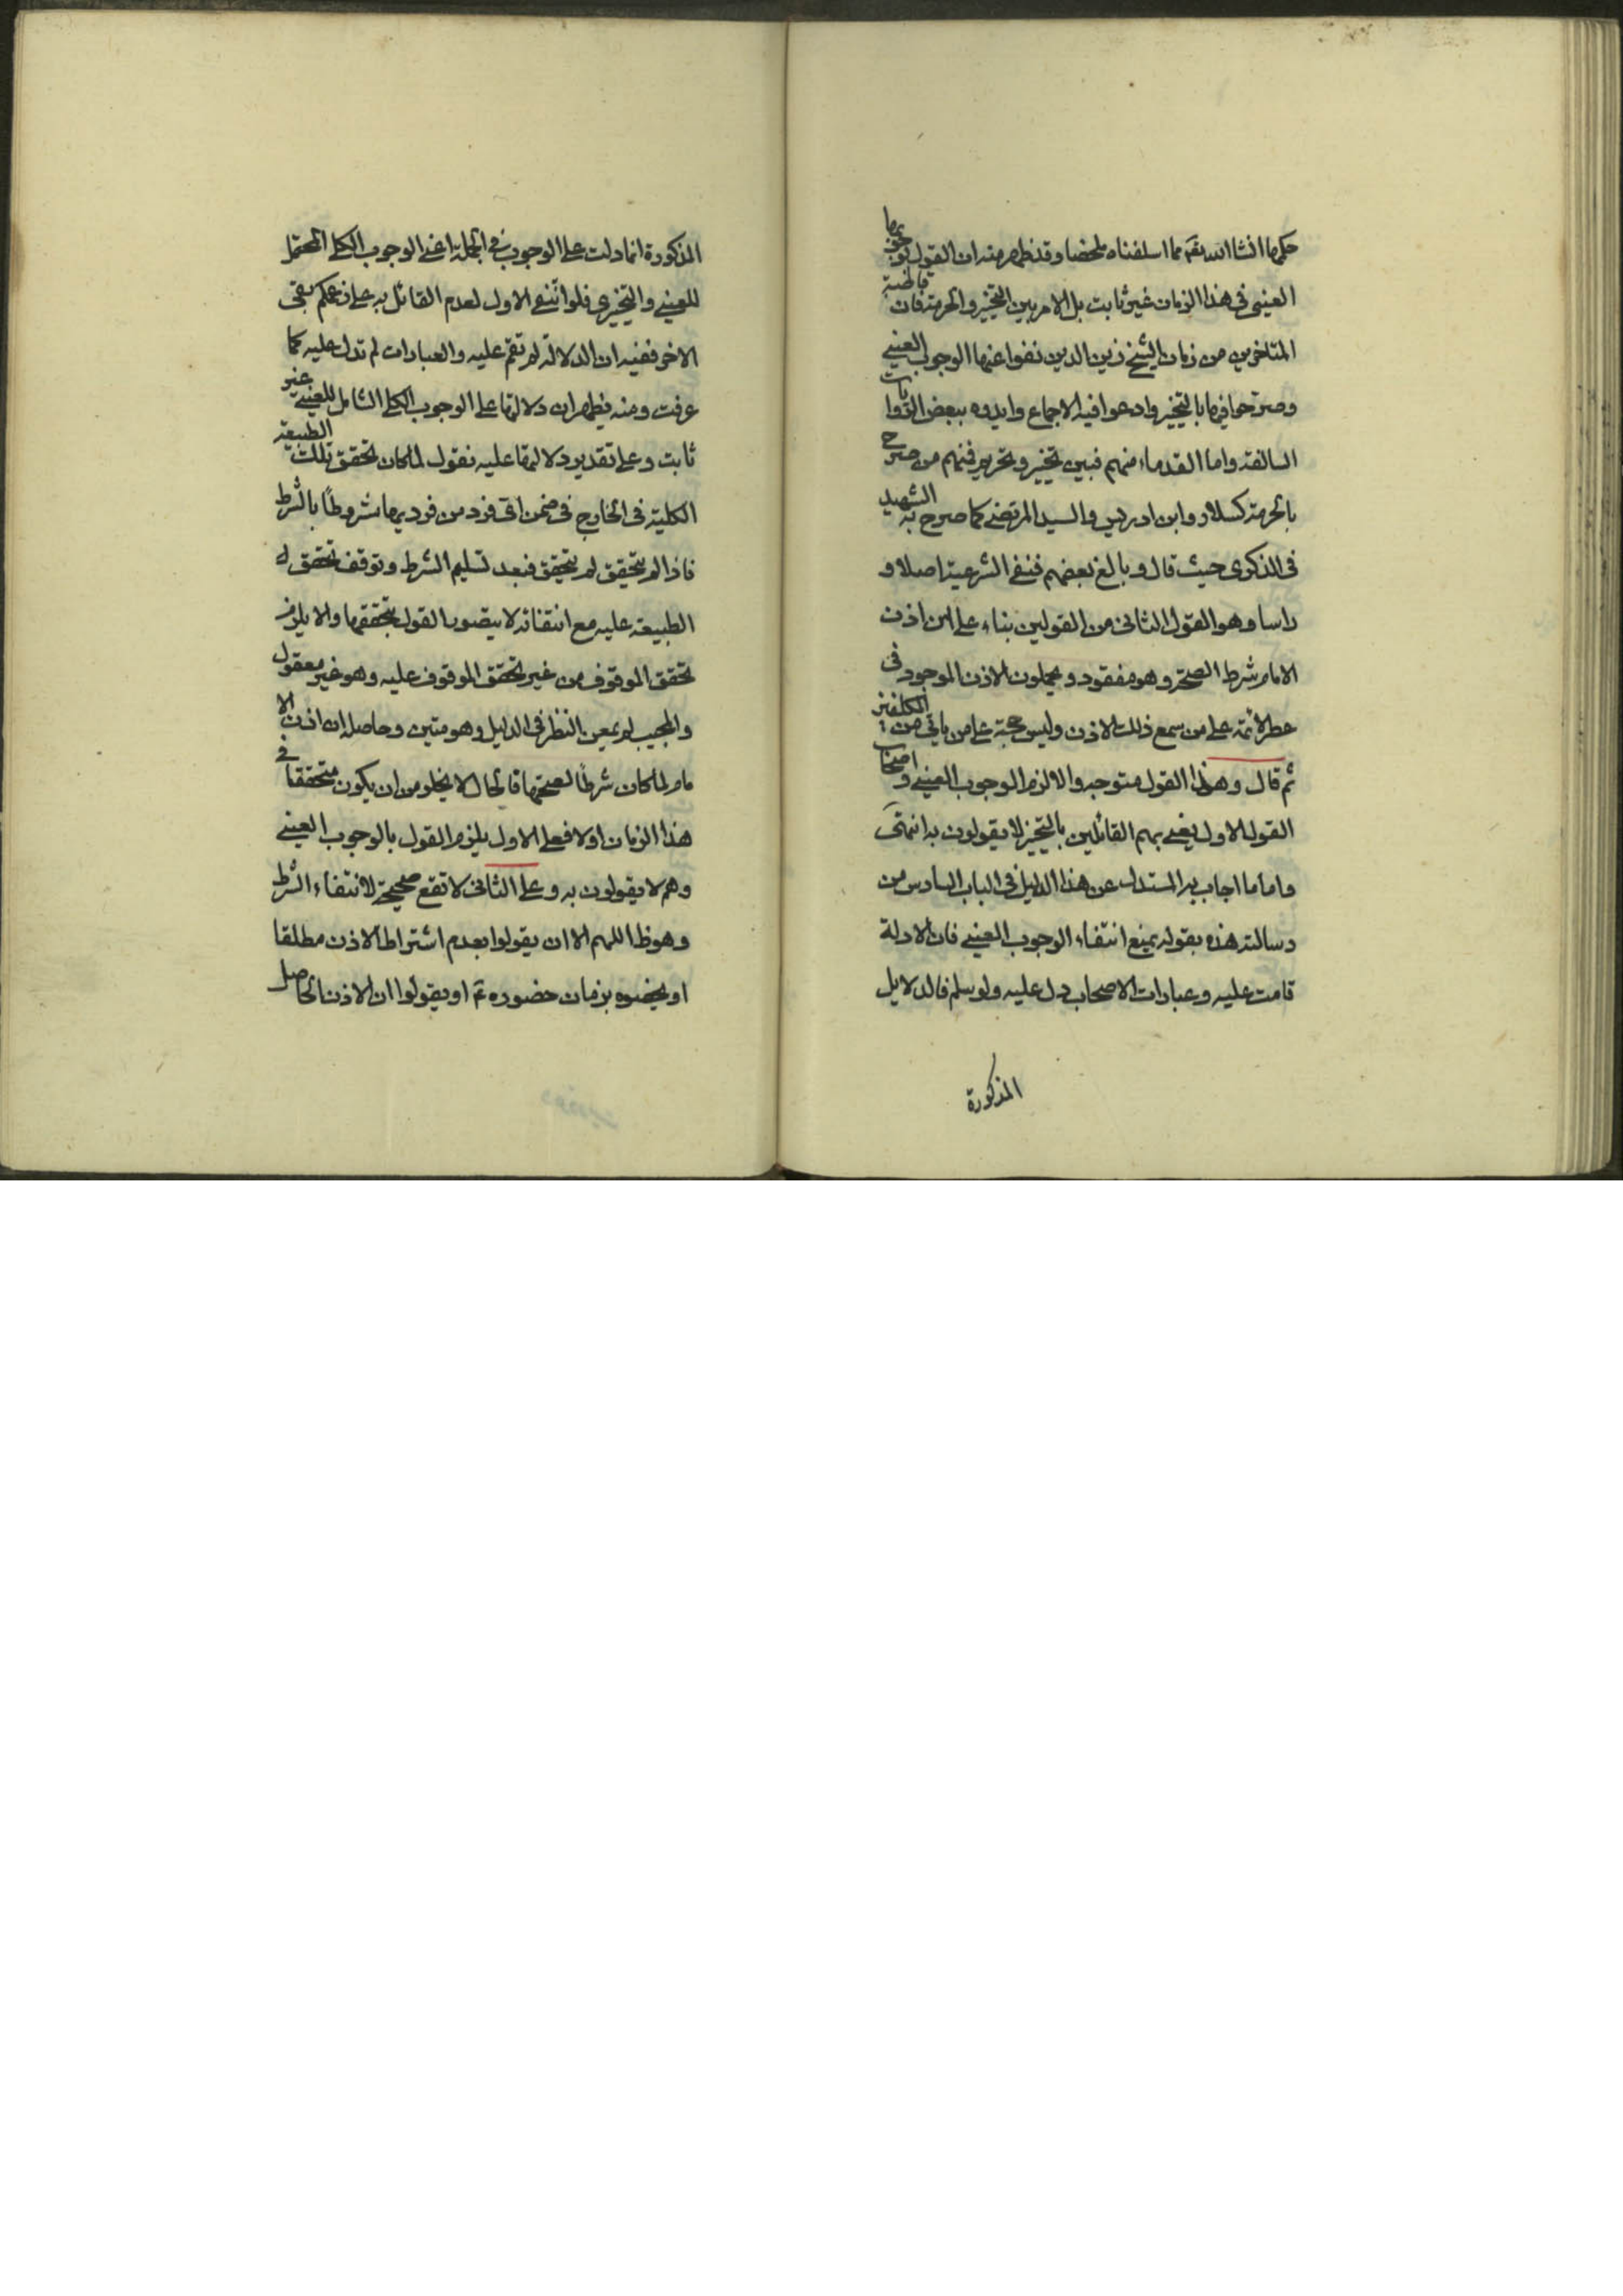 حكمها انشا الله تعم مما اسلفناه ملخصا وقد ظهر منه ان القول بوجوبها
العينى فى هذا الزمان غير ثابت بل الامر بين التخيير والحرمة فان قاطبة
المتاخرين من زمان الشيخ زين الدين نفوا عنها الوجوب العينے
وصرحوا فيها بالتخيير وادعوا فيه الاجماع وايدوه ببعض الروايات
السالفة واما القدماء منهم فبين تخيير وتحريم فمنهم من صرح
بالحرمة كسلار وابن ادريس والسيد المرتضے كما صرح به الشهيد
فى الذكرى حيث قال وبالغ بعضهم فنفى الشرعية اصلا و
راسا وهو القول الثانى من القولين بناء على ان اذن
الامام شرط الصحة وهو مفقود و يحملون الاذن الموجود فى
عطر الائمة على من سمع ذلك الاذن وليس حجة على من ياتي من المكلفين
ثم قال وهذا القول متوجه والا لزم الوجوب العينے و اصحاب
القول الاول يعنے بهم القائلين بالتخيير لا يقولون به انتهى
واما ما اجاب به المستدل عن هذا الدليل فى الباب السادس من
رسالته هذه بقوله بمنع انتفاء الوجوب العينے فان الادلة
قامت عليه وعبارات الاصحاب دل عليه ولو سلم فالدلايل
المذكورة
المذكورة انما دلت على الوجوب فى الجملة اعنے الوجوب الكلے المحتمل
للعينے والتخييرى فلو انتفى الاول لعدم القائل به على زعمكم بقى
الاخر ففيه ان الدلالة لم تقم عليه والعبارات لم تدل عليه كما
عرفت ومنه يظهر ان دلالتها على الوجوب الكلے الشامل للعينے غير
ثابت وعلى تقدير دلالتها عليه نقول لما كان تحقق تلك الطبيعة
الكلية فى الخارج فى ضمن اى فرد من فرديها مشروطًا بالشرط
فاذا لم يتحقق لم يتحقق فبعد تسليم الشرط وتوقف تحقق
الطبيعة عليه مع انتفائه لا يتصور القول بتحققها والا يلزم
تحقق الموقوف من غير تحقق الموقوف عليه وهو غير معقول
والمجيب لم يمعن النظر فى الدليل وهو متين وحاصله ان اذن الا
مام لما كان شرطًا لصحتها فالحال لا يخلو من ان يكون متحققا فے
هذا الزمان او لا فعلى الاول يلزم القول بالوجوب العينے
وهم لا يقولون به وعلى الثانى لا تقع صحيحة لانتفاء الشرط
وهو ظ اللهم الا ان يقولوا بعدم اشتراط الاذن مطلقا
او يخصوه بزمان حضوره ع او يقولوا ان الاذن الحاصل